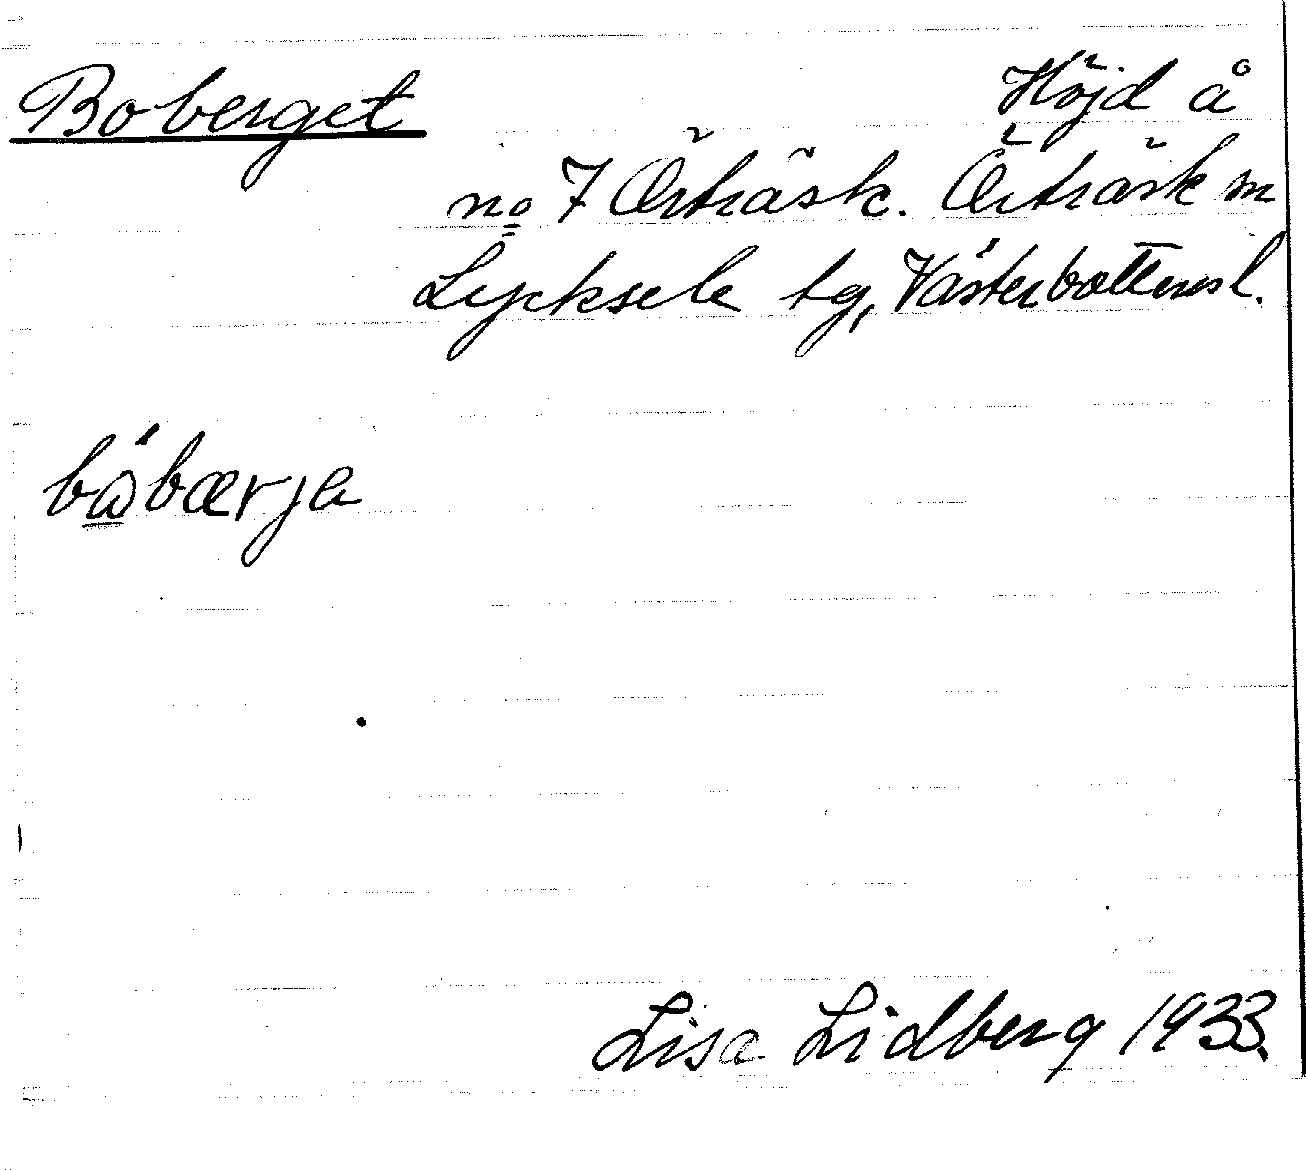 Boberget Höjd å
no 7 Örträsk. Örträsk sn
Lycksele tg, Västerbottensl.
bώ̲bærja
Lisa Lidberg 1933.